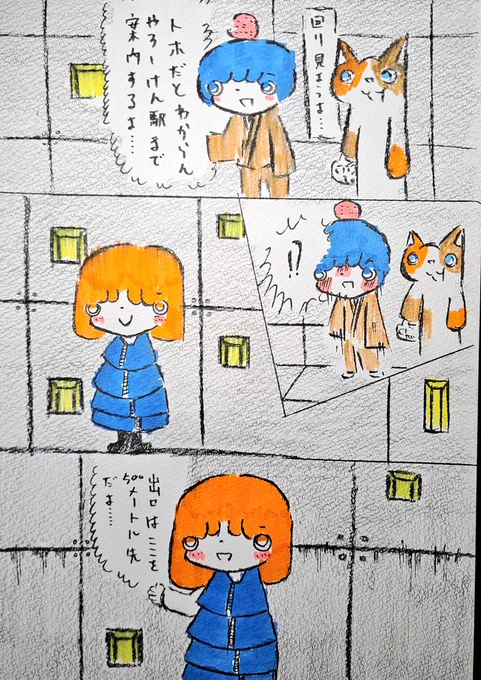 トホだとわからん
やろーけん駅まで
案内するよ……
!!
出口はここを
500メートル先
だよ……